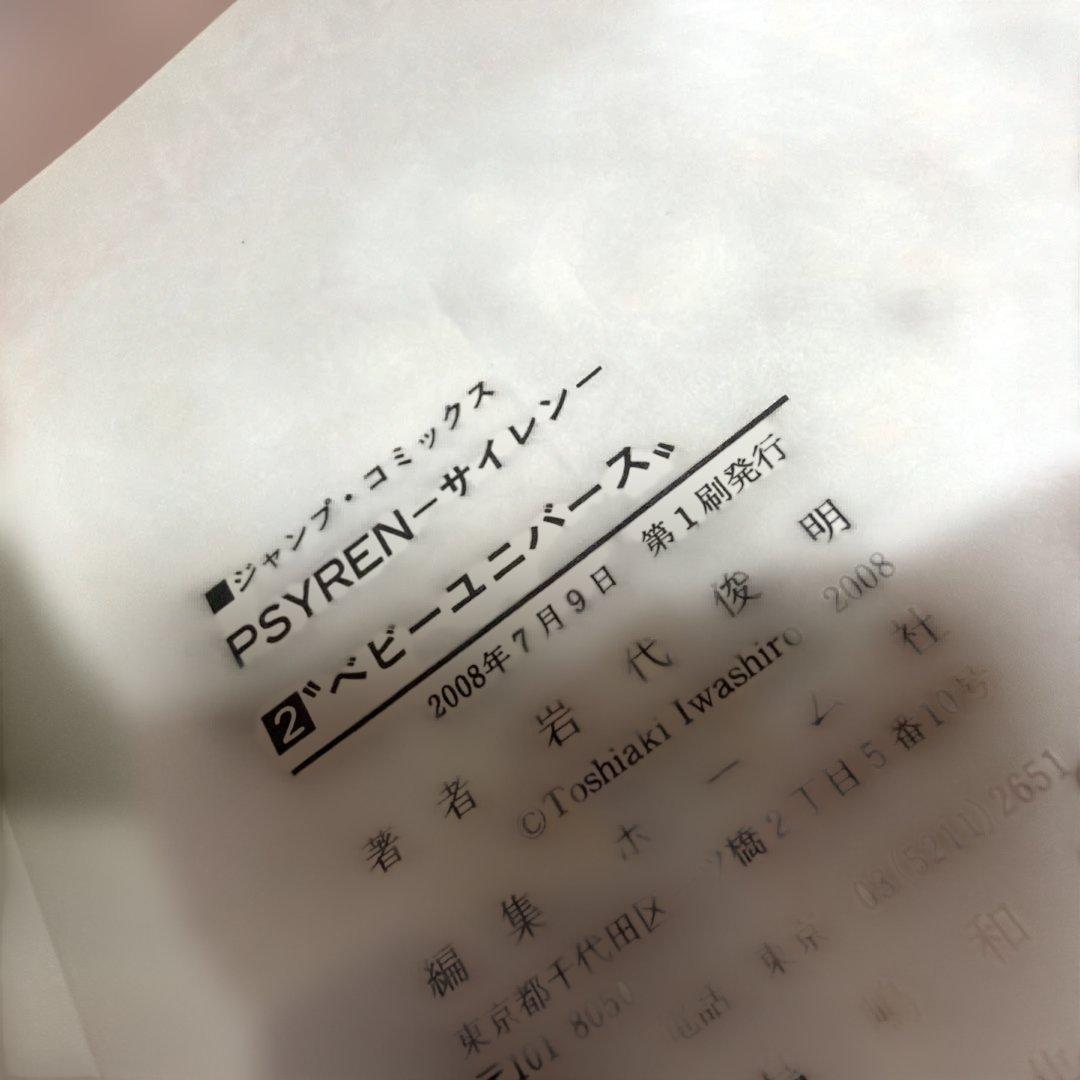 ■ジャンプ・コミックス
PSYREN－サイレン－
2〝ベビーユニバース〟
2008年7月9日 第1刷発行
著者 岩代俊明
©Toshiaki Iwashiro 2008
編集 ホーム社
東京都千代田区一ツ橋2丁目5番10号
〒101 8050
電話 東京 03(5211)2651